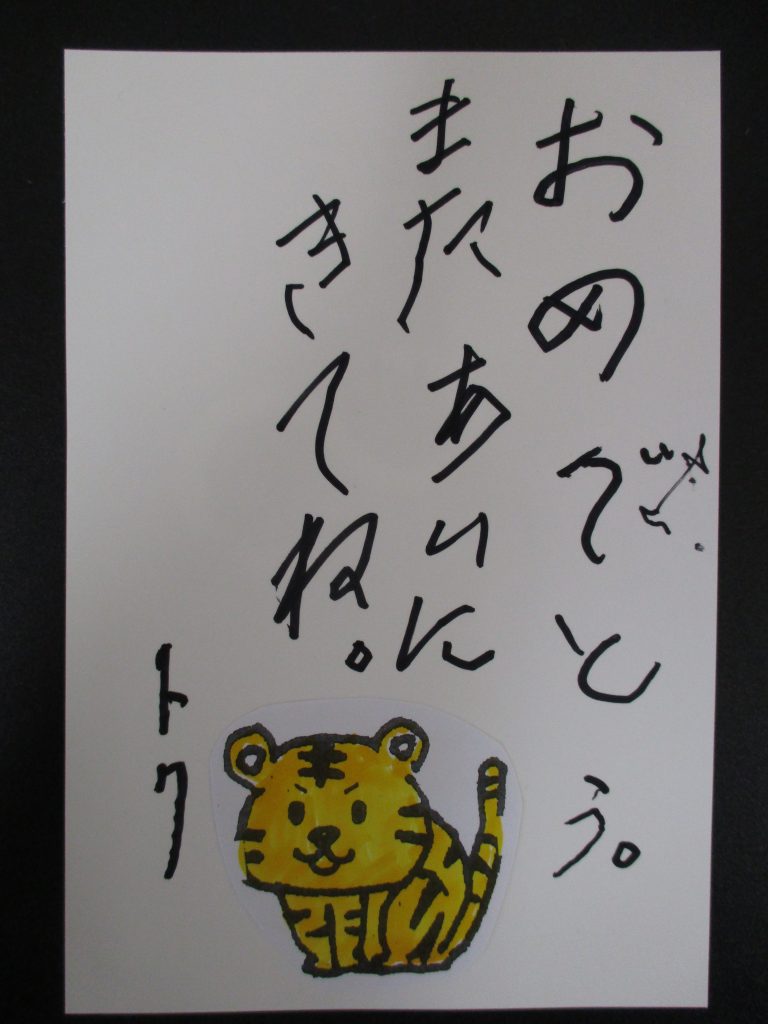 おめでとう。
また あいに
きてね。
トク